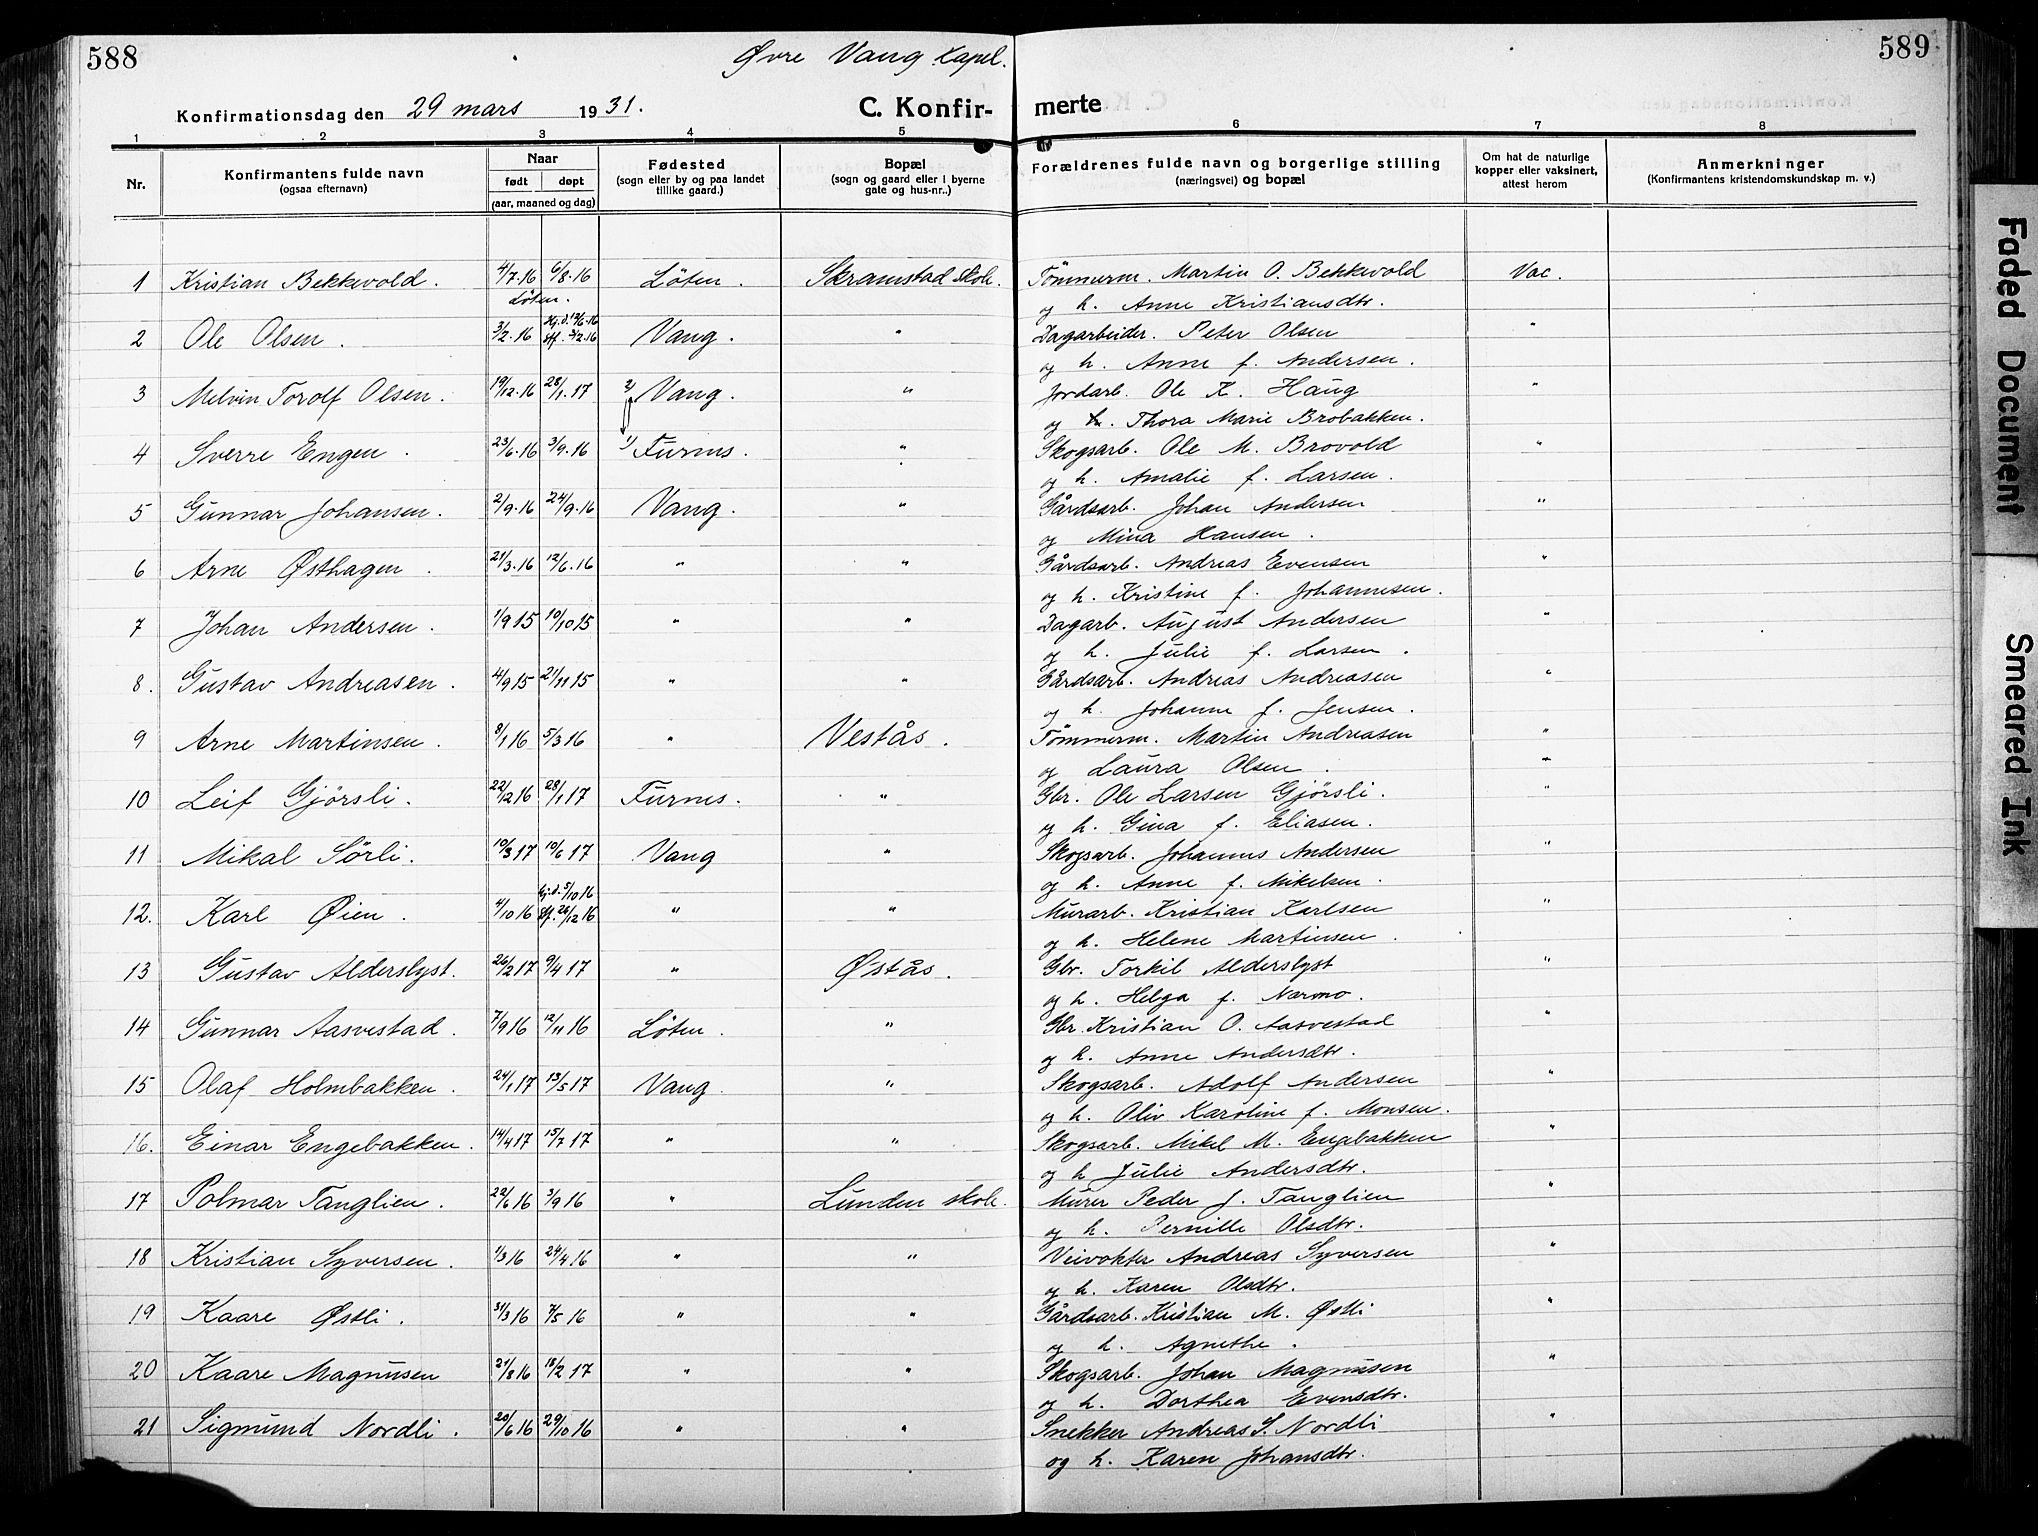 588
Øvre Vang kapel.
589
Konfirmationsdag den 29 mars 1931.
C. Konfir-
merte
1 2 3 4 5 6 7 8
Nr.
Konfirmantens fulde navn
(ogsaa efternavn)
Naar
født døpt
(aar, maaned og dag)
Fødested
(sogn eller by og paa landet
tillike gaard.)
Bopæl
(sogn og gaard eller i byerne
gate og hus-nr..)
Forældrenes fulde navn og borgerlige stilling
(næringsvei) og bopæl
Om hat de naturlige
kopper eller vaksinert,
attest herom
Anmerkninger
(Konfirmantens kristendomskundskap m. v.)
1 Kristian Bekkevold. 4/7.16 6/8.16 Løten. Skramstad skole. Tömmerm. Martin O. Bekkevold Vac.
Løten.
og h. Anne Kristiansdtr.
2 Ole Olsen. 3/2.16 Hj.d. 12/6.16 Vang. " Dagarbeider. Peter Olsen "
Stf. 3/2.16
og h. Anne f. Andersen.
3 Melvin Torolf Olsen. 19/12.16 28/1.17 2/ Vang. " Jordarb. Ole K. Haug "
og h. Thora Marie Brobakken.
4 Sverre Engen. 23/6.16 3/9.16 1/ Furnes. " Skogsarb. Ole M. Brovold "
og h. Amalie f. Larsen.
5 Gunnar Johansen. 2/9.16 24/9.16 Vang. " Gårdsarb. Johan Andersen "
og Mina Hansen.
6 Arne Østhagen. 21/3.16 12/6.16 " " Gårdsarb. Andreas Evensen "
og h. Kristine f. Johannesen.
7 Johan Andersen. 1/9 15 10/10 15 " " Dagarb. August Andersen "
og h. Julie f. Larsen.
8. Gustav Andreasen. 4/9 15 21/11 15 " " Gårdsarb. Andreas Andreasen "
og h. Johanne f. Jensen.
9 Arne Martinsen. 8/1 16 5/3 16 " Vestås. Tömmerm. Martin Andreasen "
og Laura Olsen. "
10 Leif Gjörsli. 22/12 16 28/1 17 Furnes. " Gbr. Ole Larsen Gjörsli. "
og h. Gina f. Eliasen.
11 Mikal Sörli. 10/3 17 10/6 17 Vang " Skogsarb. Johannes Andersen "
og h. Anne f. Mikelsen.
12. Karl Øien. 4/10 16 Hj.d. 5/10 16 " " Murarb. Kristian Karlsen "
Stf. 26/12 16
og h. Helene Martinsen.
13 Gustav Alderslyst. 26/2 17 9/4 17 " Østås. Gbr. Torkil Alderslyst "
og h. Helga f. Narmo.
14 Gunnar Aasvestad. 7/9 16 12/11 16 Løten. " Gbr. Kristian O. Aasvestad "
og h. Anne Andersdtr.
15 Olaf Holmbakken. 24/1 17 13/5 17 Vang. " Skogsarb. Adolf Andersen "
og h. Oliv Karoline f. Monsen.
16. Einar Engebakken. 14/4 17 15/7 17 " " Skogsarb. Mikel M. Engebakken "
og h Julie Andersdtr.
17 Polmar Tanglien. 22/6 16 3/9 16 " Lunden skole. Murer Peder J. Tanglien "
og h. Pernille Olsdtr.
18 Kristian Syversen. 1/3 16 24/4 16 " " Veivokter Andreas Syversen "
og h. Karen Olsdtr.
19 Kaare Østli. 31/3 16 7/5 16 " " Gårdsarb. Kristian M. Østli "
og h. Agnethe.
20 Kaare Magnusen 21/8 16 18/2 17 " " Skogsarb. Johan Magnusen "
og h. Dorthea Evensdtr.
21 Sigmund Nordli. 20/6 16 29/10 16 " " Snekker Andreas S. Nordli "
og h. Karen Johansdtr.
Faded Document
Smeared Ink